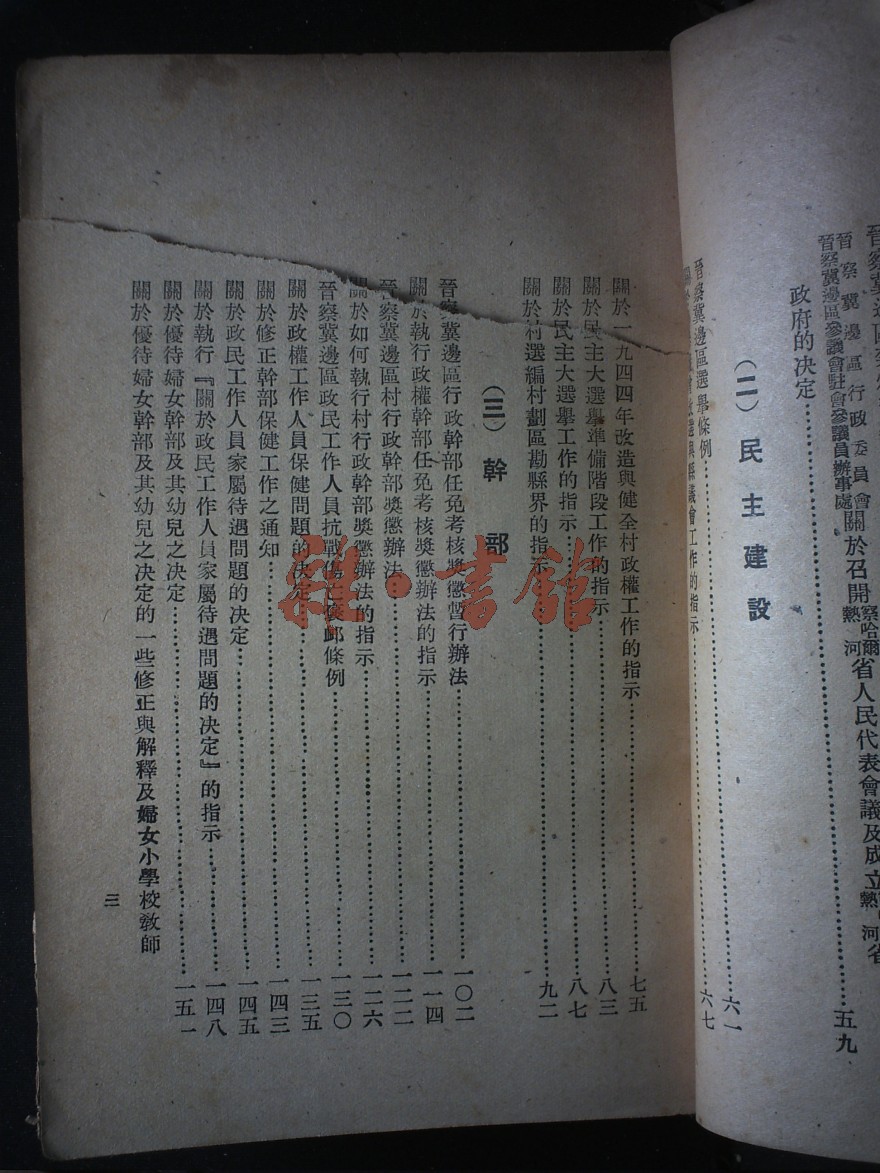 晉察冀邊區
晉察冀邊區行政委員會
晉察冀邊區參議會駐會參議員辦事處
關於召開察哈爾熱河省人民代表會議及成立熱河省
政府的決定……五九
(二)民主建設
晉察冀邊區選舉條例……六一
縣議會工作的指示……六七
關於一九四四年改造與健全村政權工作的指示……七五
關於民主大選舉準備階段工作的指示……八三
關於民主大選舉工作的指示……八七
關於村選編村劃區勘縣界的指示……九二
(三)幹部
晉察冀邊區行政幹部任免考核獎懲暫行辦法……一〇二
關於執行政權幹部任免考核獎懲辦法的指示……一一四
晉察冀邊區村行政幹部獎懲辦法……一二二
關於如何執行村行政幹部獎懲辦法的指示……一二六
晉察冀邊區政民工作人員抗戰傷亡褒卹條例……一三〇
關於政權工作人員保健問題的決定……一三五
關於修正幹部保健工作之通知……一四三
關於政民工作人員家屬待遇問題的決定……一四五
關於執行『關於政民工作人員家屬待遇問題的決定』的指示……一四八
關於優待婦女幹部及其幼兒之決定……一五一
關於優待婦女幹部及其幼兒之決定的一些修正與解釋及婦女小學校教師
三
雜·書館